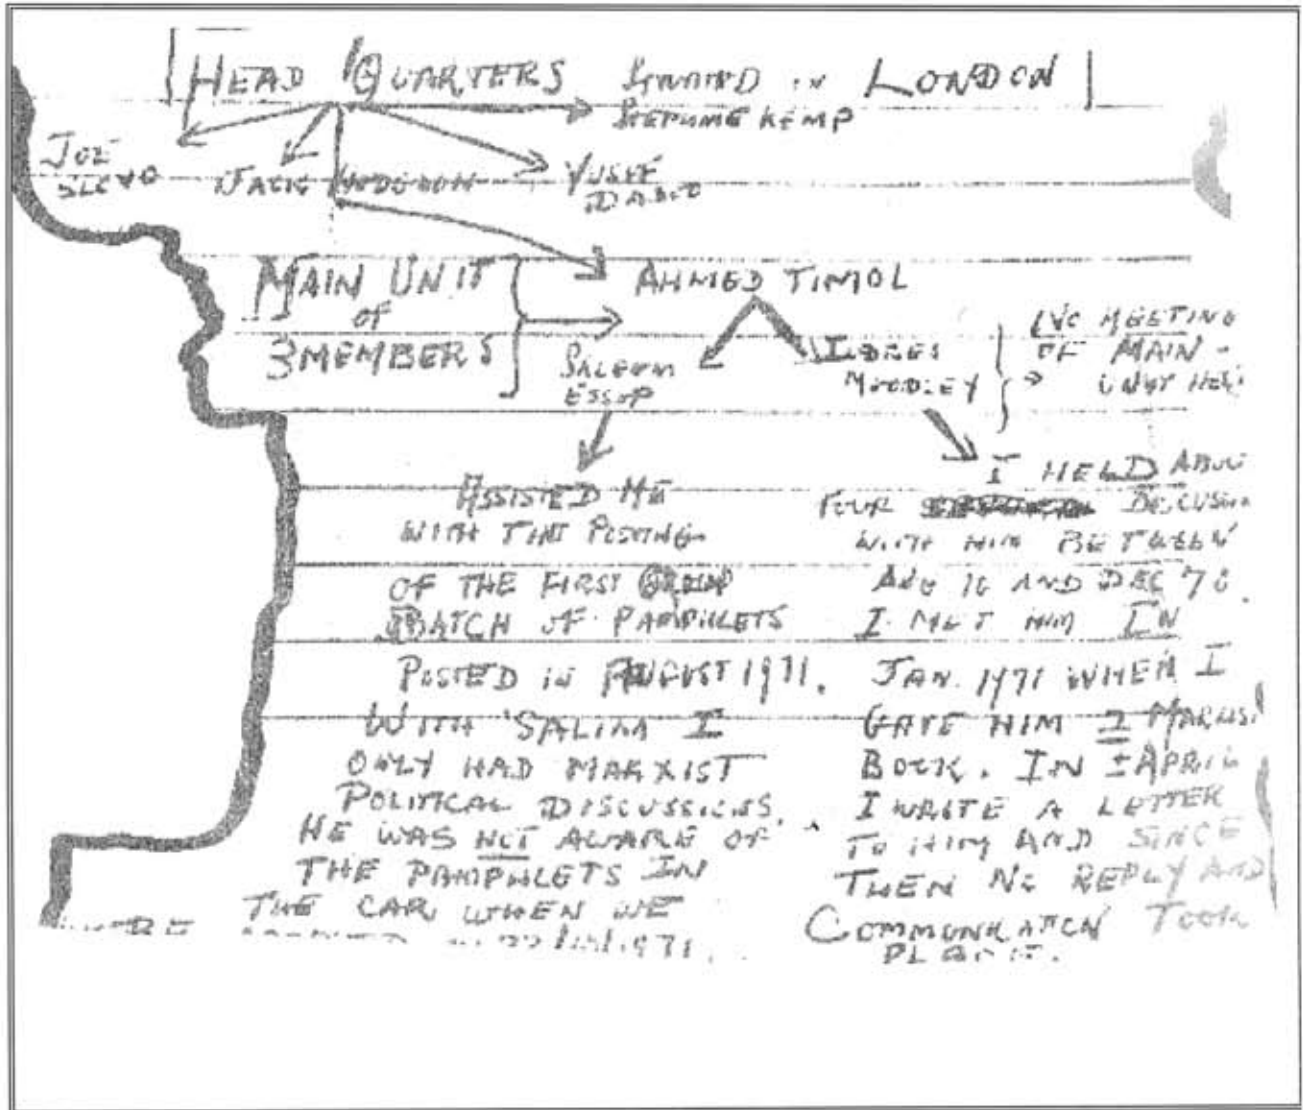 HEAD QUARTERS IN LONDON
STEPHANIE KEMP
JOE SLOVO
JACK HODGSON
YUSUF DADOO
MAIN UNIT OF 3 MEMBERS
AHMED TIMOL
SALEEM ESSOP
MOODLEY
NO MEETING
OF MAIN -
UNIT HEL
ASSISTED ME
WITH THE POSTING
OF THE FIRST
BATCH OF PAMPHLETS
POSTED IN AUGUST 1971.
WITH SALIM I
ONLY HAD MARXIST
POLITICAL DISCUSSIONS.
HE WAS NOT AWARE OF
THE PAMPHLETS IN
THE CAR WHEN WE
WERE 1971.
I HELD ABOU
FOUR DISCUSSI
WITH HIM BETWEEN
AUG AND DEC 70.
I MET HIM IN
JAN. 1971 WHEN I
GAVE HIM MARXIS
BOOK. IN ± APRIL
I WROTE A LETTER
TO HIM AND SINCE
THEN NO REPLY AND
COMMUNICATION TOOK
PLACE.